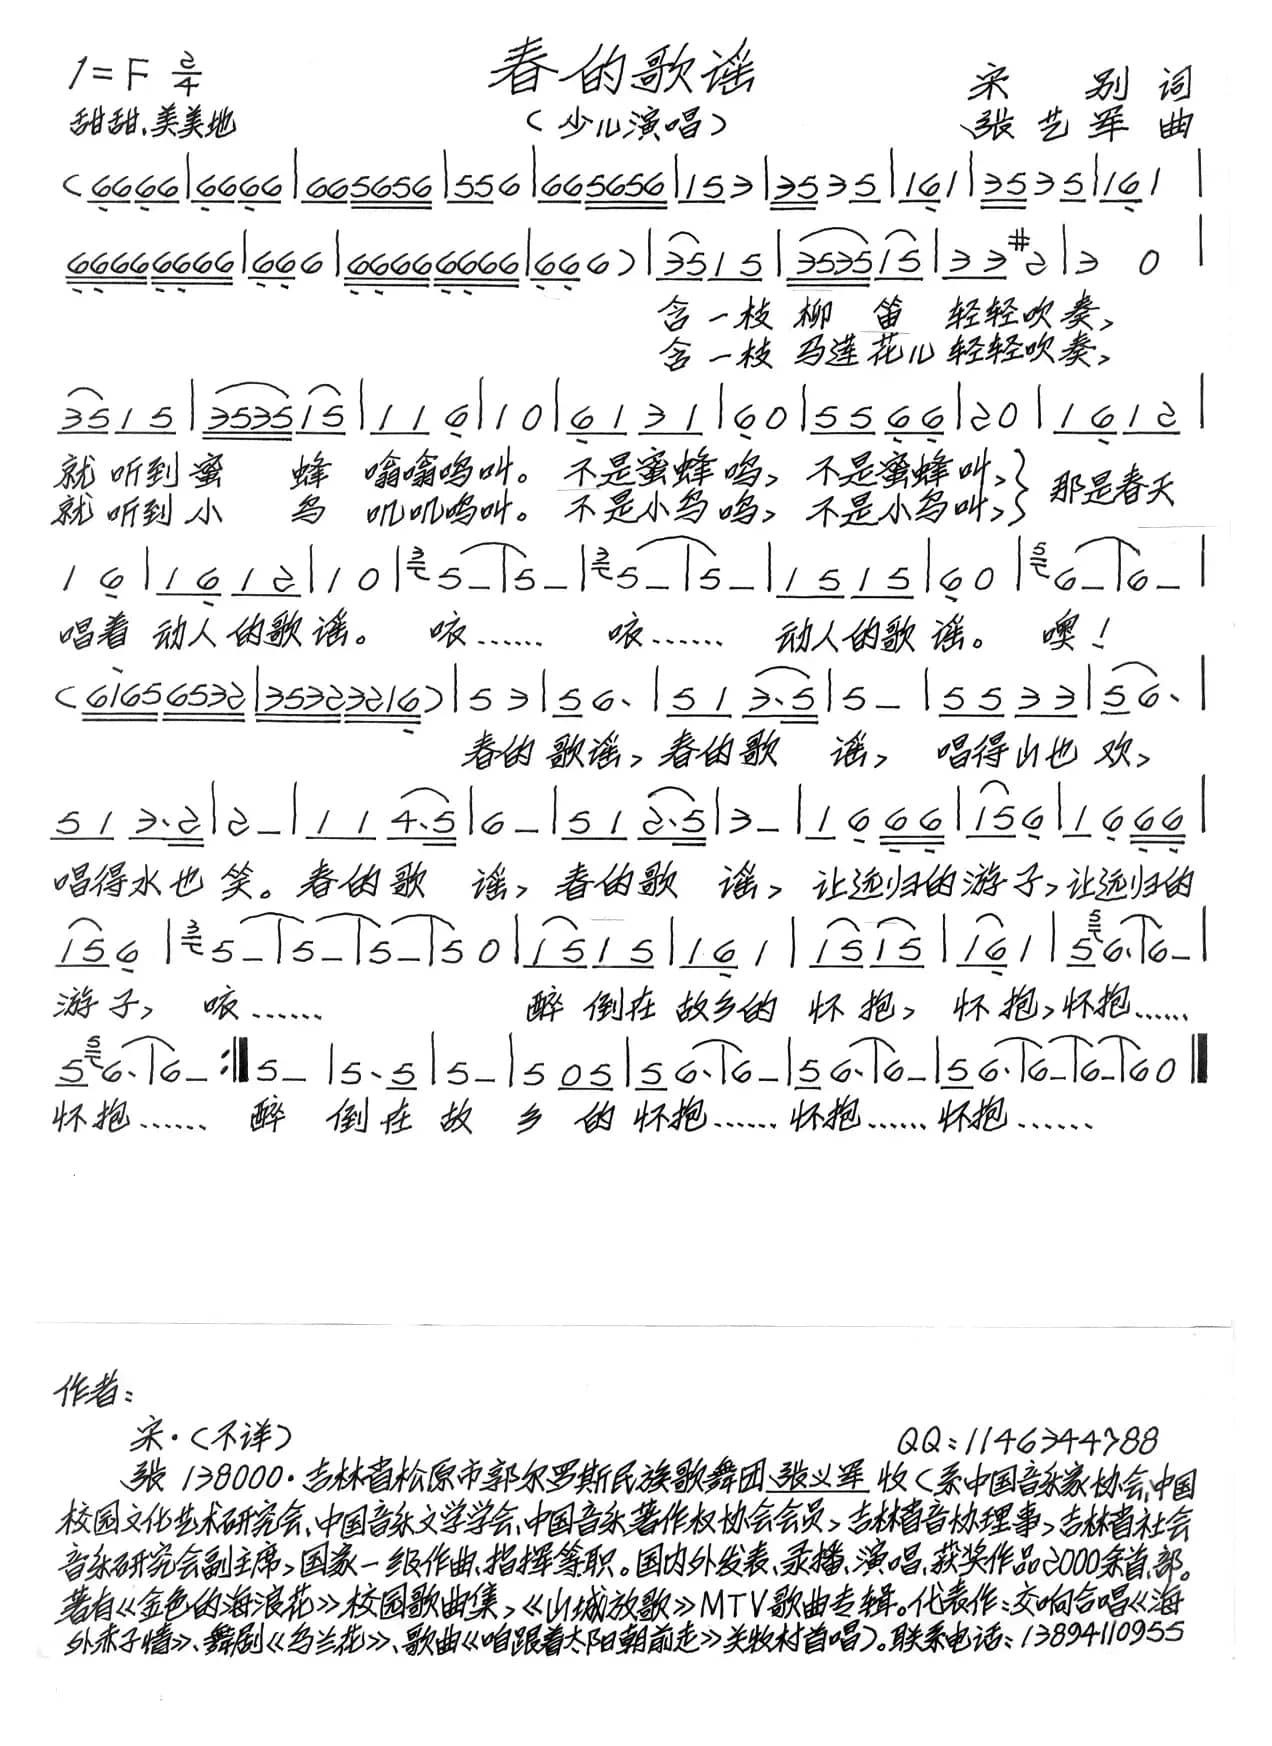 1=F 2/4
春的歌谣
宋 别 词
甜甜、美美地
(少儿演唱)
张艺军 曲
(6666|6666|665656|556|665656|153|3535|161|3535|161|
66666666|666|66666666|666)|3515|353515|33#2|3 0|
含一枝柳 笛 轻轻吹奏,
含一枝马莲花儿轻轻吹奏,
3515|353515|116|10|6131|60|5566|20|1612|
就听到蜜 蜂 嗡嗡鸣叫。不是蜜蜂鸣,不是蜜蜂叫,} 那是春天
就听到小 鸟 叽叽鸣叫。不是小鸟鸣,不是小鸟叫,}
16|1612|10|3 5-|5-|3 5-|5-|1515|60|5 6-|6-|
唱着动人的歌谣。 咳…… 咳…… 动人的歌谣。 噢!
(61656532|35323216)|53|56.|513.5|5-|5533|56.|
春的歌谣,春的歌 谣, 唱得山也欢,
513.2|2-|114.5|6-|512.5|3-|1666|156|1666|
唱得水也笑。春的歌 谣,春的歌 谣,让远归的游子,让远归的
156|3 5-|5-|5-|50|1515|161|1515|161|5 5 6.|6-|
游子, 咳…… 醉倒在故乡的怀抱, 怀抱,怀抱……
5 5 6.|6-:‖5-|5.5|5-|505|56.|6-|56.|6-|56.|6-|6-|60‖
怀抱…… 醉 倒在故 乡 的怀抱……怀抱……怀抱……
作者:
宋·(不详)
QQ:1146344788
张 138000·吉林省松原市郭尔罗斯民族歌舞团 张义军 收(系中国音乐家协会、中国
校园文化艺术研究会、中国音乐文学学会、中国音乐著作权协会会员,吉林省音协理事,吉林省社会
音乐研究会副主席,国家一级作曲、指挥等职。国内外发表、录播、演唱、获奖作品2000余首、部。
著有《金色的海浪花》校园歌曲集,《山城放歌》MTV歌曲专辑。代表作:交响合唱《海
外赤子情》、舞剧《乌兰花》、歌曲《咱跟着太阳朝前走》关牧村首唱)。联系电话:13894110955